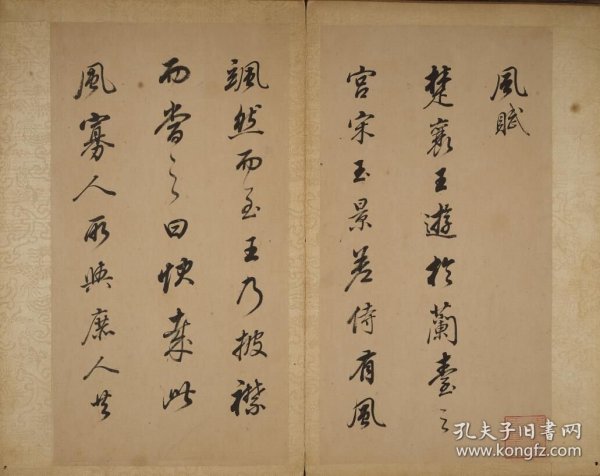 風賦
楚襄王遊於蘭臺之
宮宋玉景差侍有風
颯然而至王乃披襟
而當之曰快哉此
風寡人所與庶人共
孔夫子旧书网
www.kongfz.com